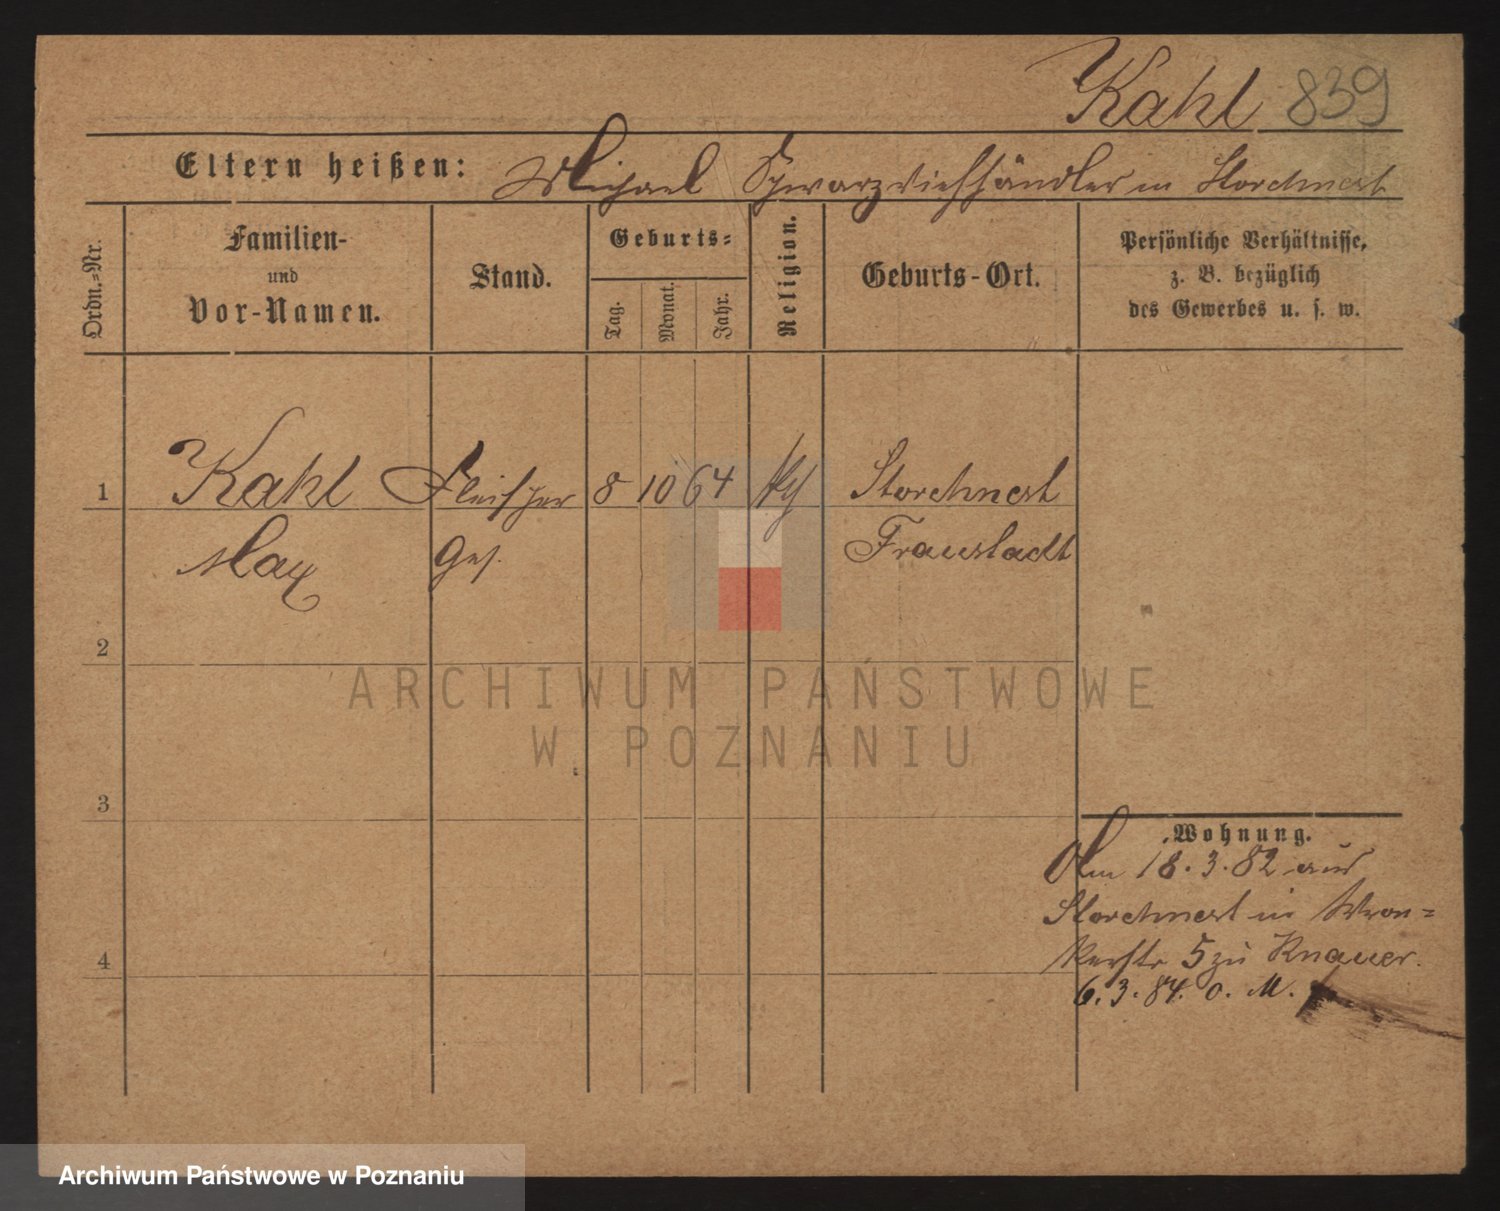 Kahl 839
Eltern heißen: Michael Schwarzviehhändler in Storchnest
Ordn.-Nr.
Familien-
und
Vor-Namen.
Stand.
Geburts-
Tag.
Monat.
Jahr.
Religion.
Geburts-Ort.
Persönliche Verhältnisse,
z. B. bezüglich
des Gewerbes u. s. w.
1 Kahl Fleischer 8 10 64 Storchnest
Max Ges. Fraustadt
2
3
4
Wohnung.
Am 18.3.82 aus
Storchnest in Wron-
kerstr 5 zu Knauer.
6.3.84. o. M.
ARCHIWUM PAŃSTWOWE
W POZNANIU
Archiwum Państwowe w Poznaniu